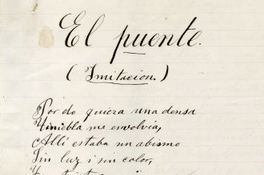 El puente.
(Imitacion.)
Por do quiera una densa
Tiniebla me envolvia,
Allí estaba un abismo
Sin luz i sin color,